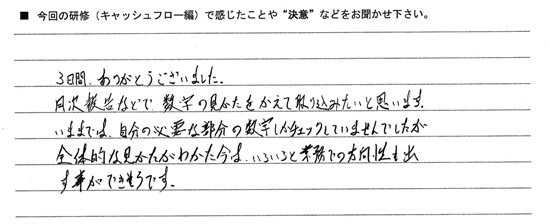 ■ 今回の研修（キャッシュフロー編）で感じたことや“決意”などをお聞かせ下さい。
3日間、ありがとうございました。
月次報告などで数字の見かたをかえて取り込みたいと思います。
いままでは、自分の必要な部分の数字しかチェックしていませんでしたが
全体的な見かたがわかた今は、いろいろと業務での方向性も出
す事ができそうです。